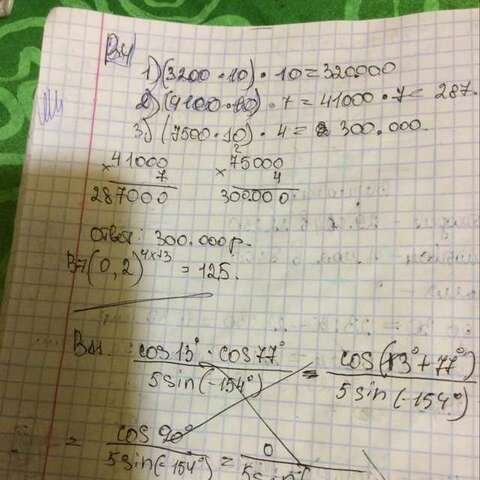 В4
1) (3200·10)·10=320000
2) (41000·10)·7=41000·7= 287.
3) (7500·10)·4= 300.000.
×41000
7
287000
2
×75000
4
300000
ответ: 300.000р.
В7 (0,2)^4x+3 = 125.
В11. cos13°·cos77° / 5sin(-154°) = cos(13°+77°) / 5sin(-154°)
= cos90° / 5sin(-154°) = 0 / 5sin(-1